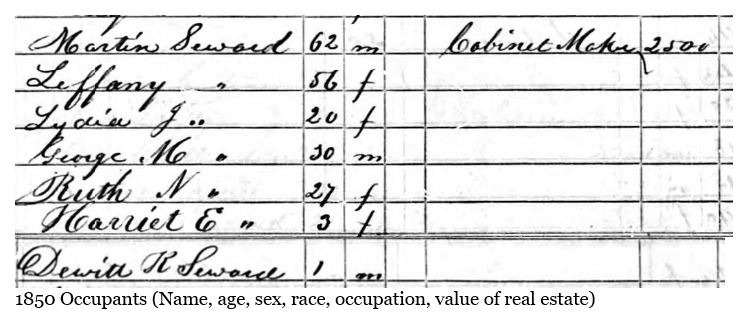 Martin Seward 62 m Cabinet Maker 2500
Leffany " 56 f
Lydia J " 20 f
George M " 30 m
Ruth N " 27 f
Harriet E " 3 f
Dewitt K Seward 1 m
1850 Occupants (Name, age, sex, race, occupation, value of real estate)